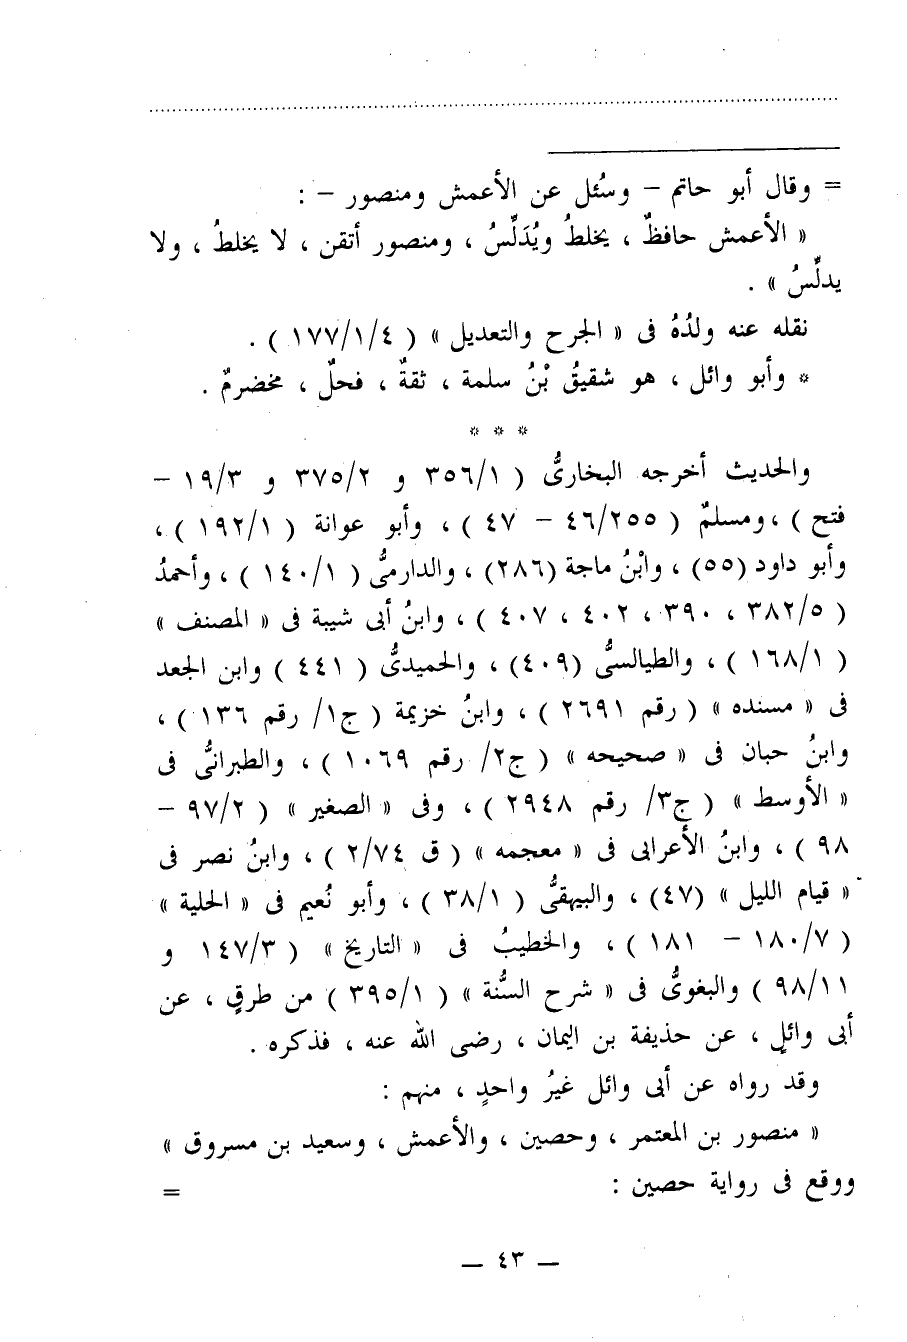 = وقال أبو حاتم – وسُئل عن الأعمش ومنصور – :
« الأعمش حافظٌ ، يخلطُ ويُدَلِّسُ ، ومنصور أتقن ، لا يخلطُ ، ولا
يدلِّسُ » .
نقله عنه ولدُهُ فى « الجرح والتعديل » ( ١٧٧/١/٤ ) .
* وأبو وائل ، هو شقيقُ بْنُ سلمة ، ثقةٌ ، فحلٌ ، مخضرمٌ .
* * *
والحديث أخرجه البخارىُّ ( ٣٥٦/١ و ٣٧٥/٢ و ١٩/٣ –
فتح ) ، ومسلمٌ ( ٤٦/٢٥٥ – ٤٧ ) ، وأبو عوانة ( ١٩٢/١ ) ،
وأبو داود (٥٥) ، وابْنُ ماجة (٢٨٦) ، والدارمىُّ ( ١٤٠/١ ) ، وأحمدُ
( ٣٨٢/٥ ، ٣٩٠ ، ٤٠٢ ، ٤٠٧ ) ، وابنُ أبى شيبة فى « المصنف »
( ١٦٨/١ ) ، والطيالسىُّ (٤٠٩) ، والحميدىُّ ( ٤٤١ ) وابن الجعد
فى « مسنده » ( رقم ٢٦٩١ ) ، وابنُ خزيمة ( ج١/ رقم ١٣٦ ) ،
وابنُ حبان فى « صحيحه » ( ج٢/ رقم ١٠٦٩ ) ، والطبرانىُّ فى
« الأوسط » ( ج٣/ رقم ٢٩٤٨ ) ، وفى « الصغير » ( ٩٧/٢ –
٩٨ ) ، وابنُ الأعرابى فى « معجمه » ( ق ٢/٧٤ ) ، وابنُ نصر فى
« قيام الليل » (٤٧) ، والبيهقىُّ ( ٣٨/١ ) ، وأبو نُعيم فى « الحلية »
( ١٨٠/٧ – ١٨١ ) ، والخطيبُ فى « التاريخ » ( ١٤٧/٣ و
٩٨/١١ ) والبغوىُّ فى « شرح السُّنة » ( ٣٩٥/١ ) من طرقٍ ، عن
أبى وائلٍ ، عن حذيفة بن اليمان ، رضى الله عنه ، فذكره .
وقد رواه عن أبى وائل غيرُ واحدٍ ، منهم :
« منصور بن المعتمر ، وحصين ، والأعمش ، وسعيد بن مسروق »
ووقع فى رواية حصين : =
— ٤٣ —